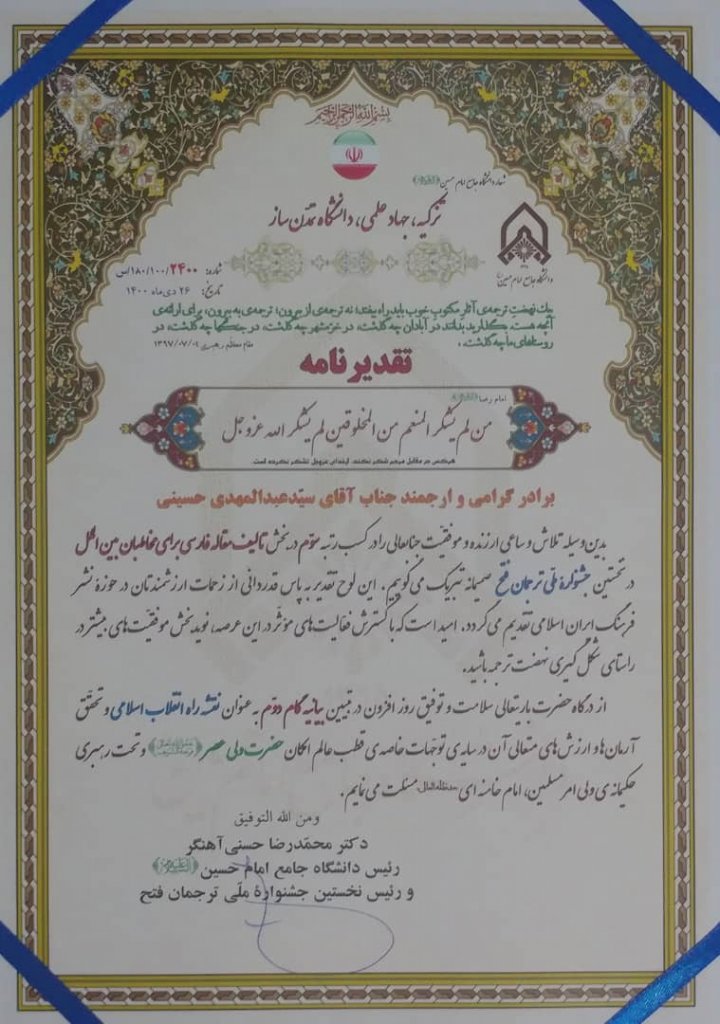 بسم الله الرحمن الرحیم
شعار دانشگاه جامع امام حسین (علیه‌السلام)
تزکیه، جهاد علمی، دانشگاه تمدّن ساز
دانشگاه جامع امام حسین
شماره: ۱۸۰/۱۰۰/۲۴۰۰/ص
تاریخ: ۲۶ دی ماه ۱۴۰۰
یك نهضتِ ترجمه‌ی آثار مکتوبِ خوب باید راه بیفتد؛ نه ترجمه‌ی از بیرون؛ ترجمه‌ی به بیرون، برای ارائه‌ی
آنچه هست. بگذارید بدانند در آبادان چه گذشت، در خرمشهر چه گذشت، در جنگها چه گذشت، در
روستاهای ما چه گذشت.
مقام معظم رهبری ۱۳۹۷/۰۷/۰۴
تقدیرنامه
امام رضا
من لم یشکر المنعم من المخلوقین لم یشکر الله عزوجل
برادر گرامی و ارجمند جناب آقای سیّدعبدالمهدی حسینی
بدین وسیله تلاش و مساعی ارزنده و موفقیت جنابعالی را در کسب رتبه سوّم در بخش تألیف مقاله فارسی برای مخاطبان بین الملل
در نخستین جشنوارهٔ ملّی ترجمان فتح صمیمانه تبریک می‌گوییم. این لوح تقدیر به پاس قدردانی از زحمات ارزشمندتان در حوزهٔ نشر
فرهنگ ایران اسلامی تقدیم می‌گردد. امید است که با گسترش فعّالیت‌های مؤثّر در این عرصه، نویدبخش موفقیّت‌های بیشتر در
راستای شکل گیری نهضت ترجمه باشید.
از درگاه حضرت باریتعالی سلامت و توفیق روز افزون در تبیین بیانیه گام دوّم به عنوان نقشه راه انقلاب اسلامی و تحقّق
آرمان‌ها و ارزش‌های متعالی آن در سایه‌ی توجهات خاصه‌ی قطب عالم امکان حضرت ولی عصر و تحت رهبری
حکیمانه‌ی ولی امر مسلمین، امام خامنه ای مدظله‌العالی مسئلت می‌نمایم.
ومن الله التوفیق
دکتر محمّدرضا حسنی‌آهنگر
رئیس دانشگاه جامع امام حسین (علیه‌السلام)
و رئیس نخستین جشنوارهٔ ملّی ترجمان فتح